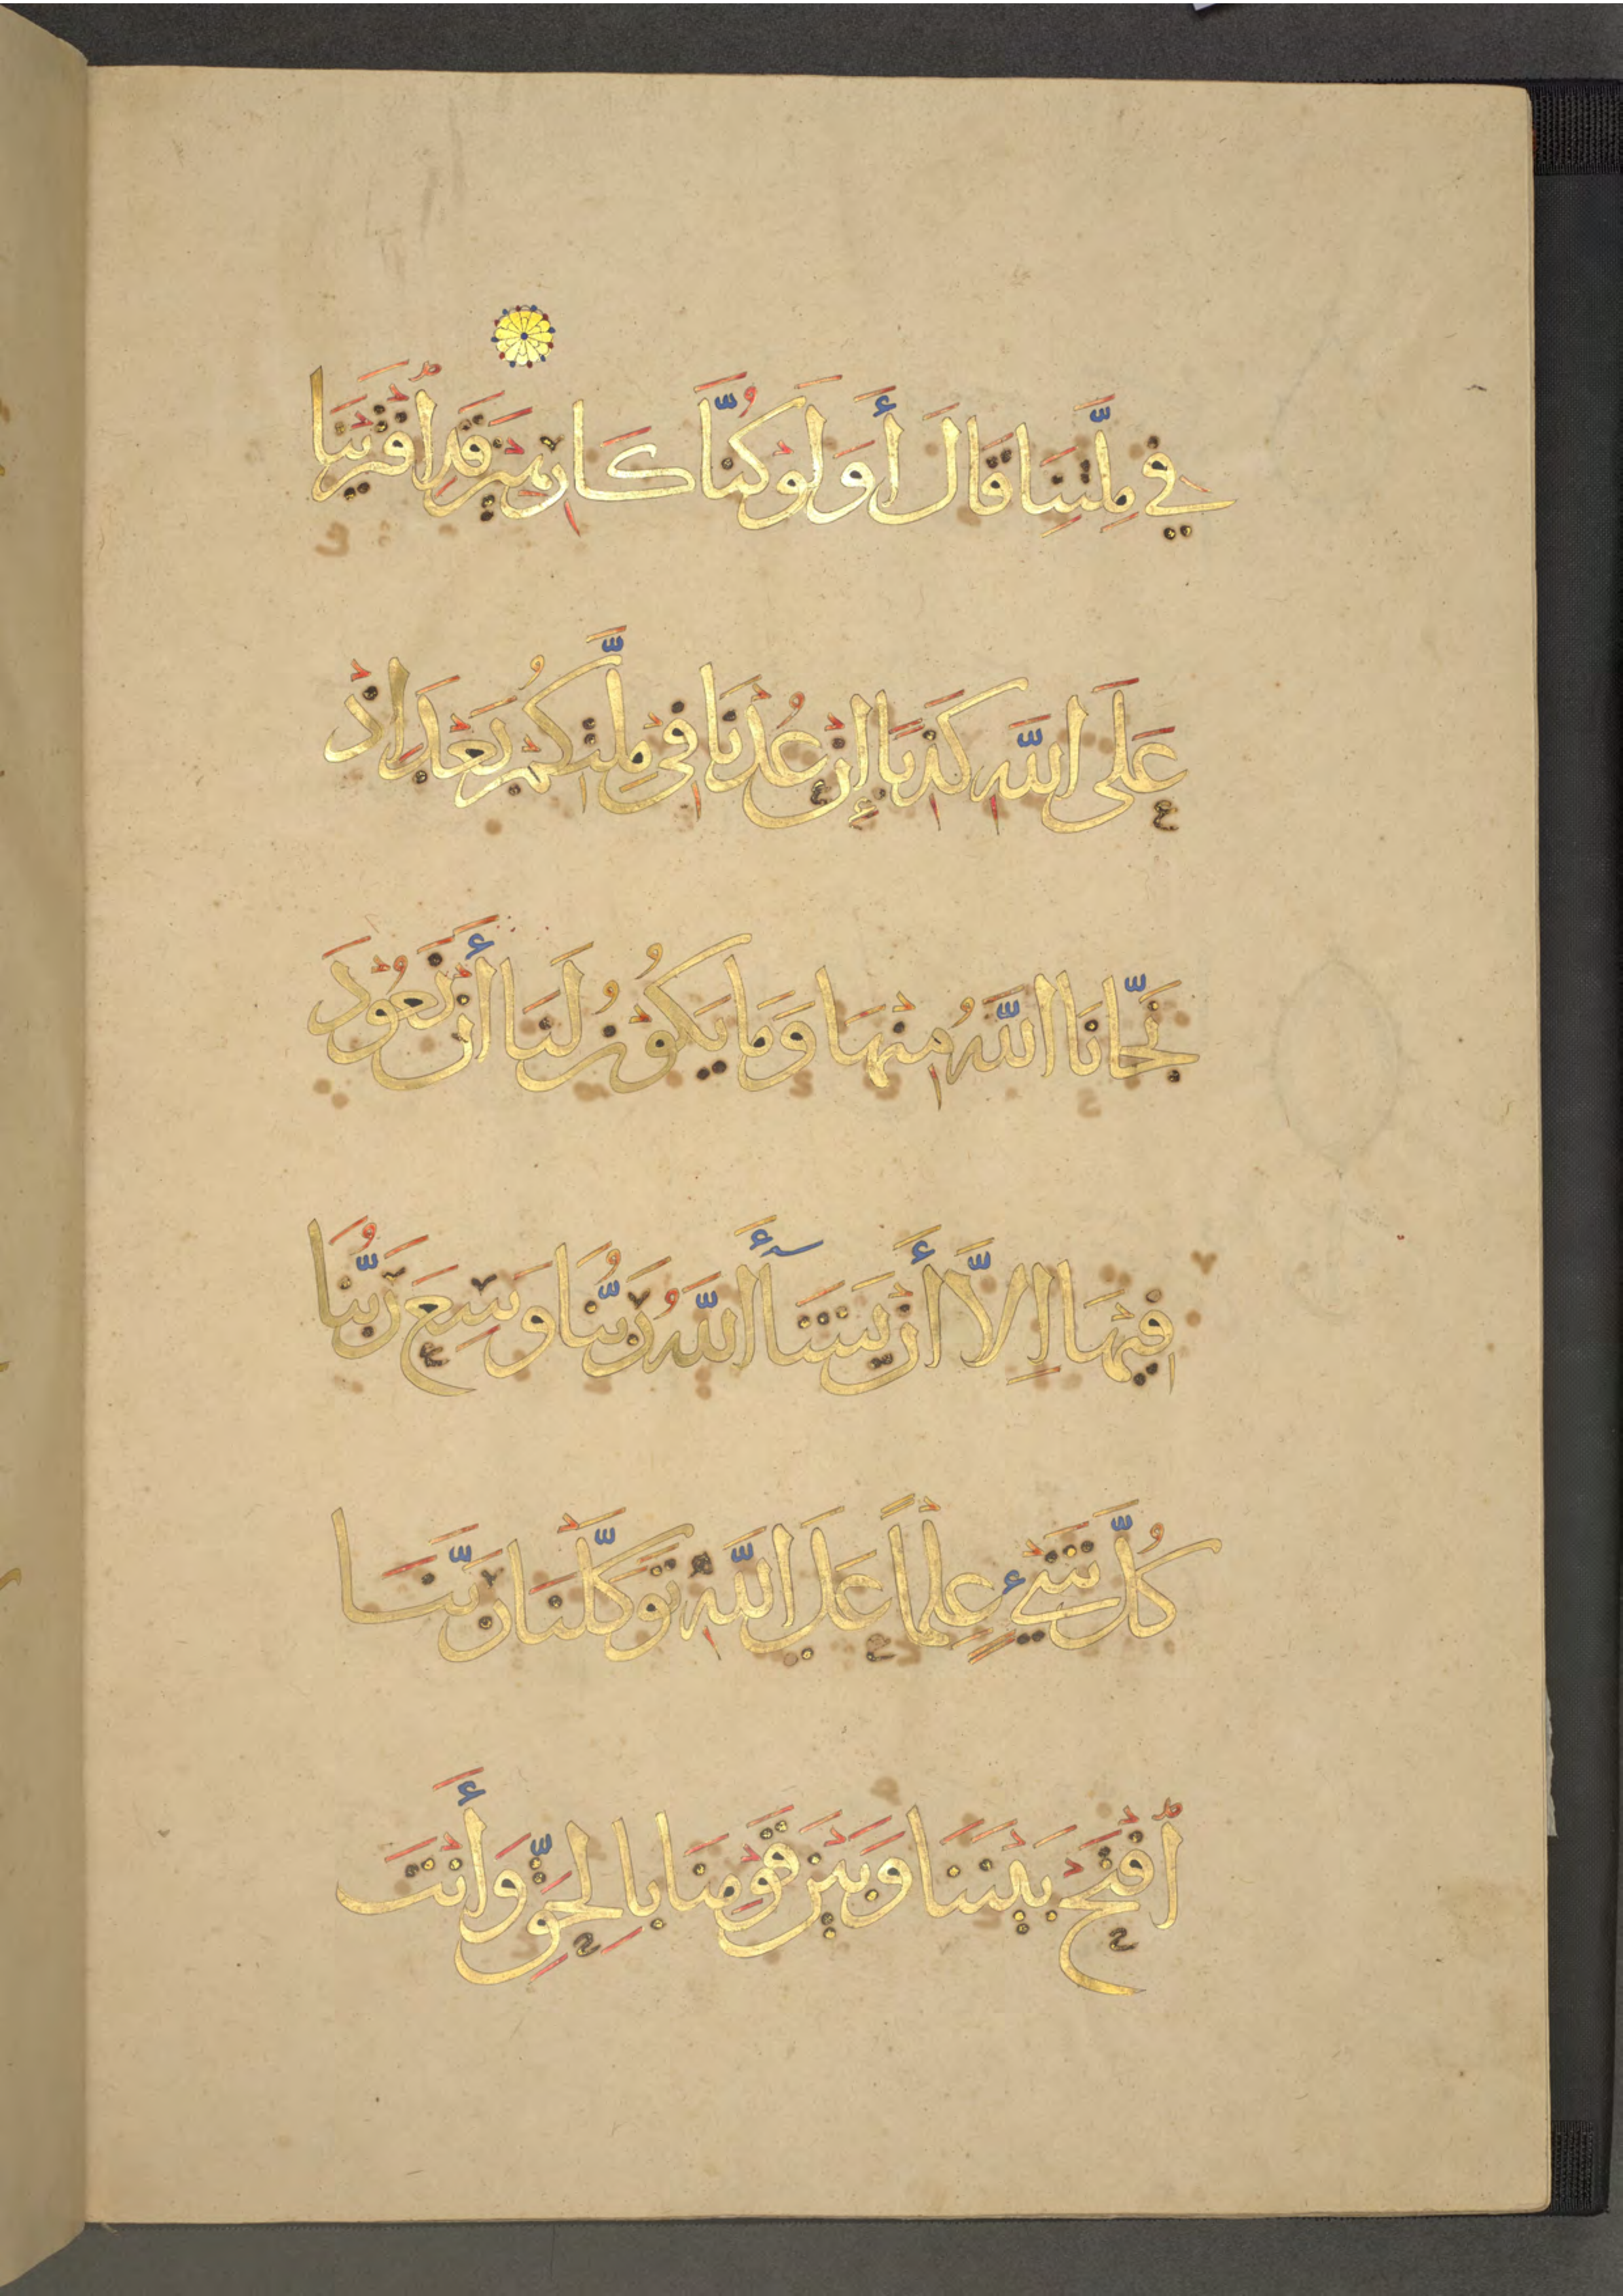 فِي مِلَّتِنَا قَالَ أَوَلَوْ كُنَّا كَارِهِينَ قَدِ اُفْتَرَيْنَا
عَلَى اللَّهِ كَذِبًا إِنْ عُدْنَا فِي مِلَّتِكُمْ بَعْدَ إِذْ
نَجَّانَا اللَّهُ مِنْهَا وَمَا يَكُوْنُ لَنَا أَنْ نَعُوْدَ
فِيْهَا إِلَّا أَنْ يَشَآءَ اللَّهُ رَبُّنَا وَسِعَ رَبُّنَا
كُلَّ شَيْءٍ عِلْمًا عَلَى اللَّهِ تَوَكَّلْنَا رَبَّنَا
اُفْتَحْ بَيْنَنَا وَبَيْنَ قَوْمِنَا بِالْحَقِّ وَأَنْتَ